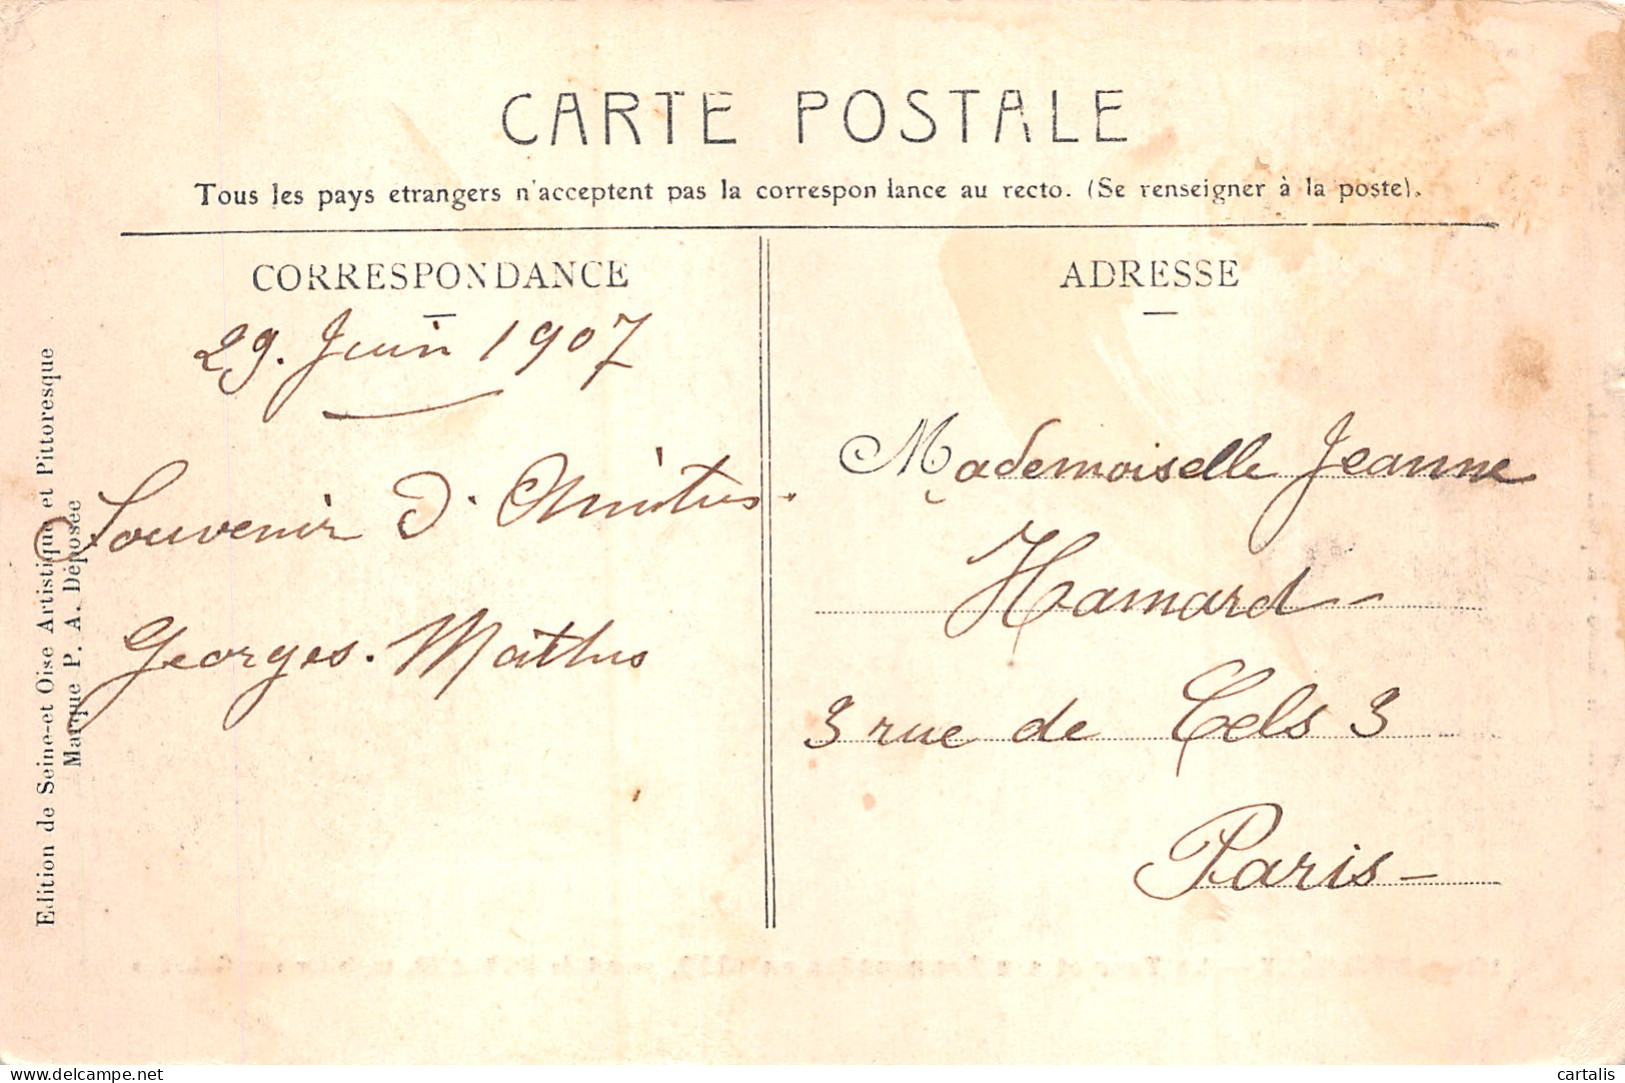 CARTE POSTALE
Tous les pays etrangers n'acceptent pas la correspondance au recto. (Se renseigner à la poste).
CORRESPONDANCE
29. Juin 1907
Souvenir d'Amitiés.
Georges. Mathus
ADRESSE
Mademoiselle Jeanne
Hamard
3 rue de Cels 3
Paris
Edition de Seine-et Oise Artistique et Pittoresque
Marque P. A. Déposée
delcampe.net
cartalis